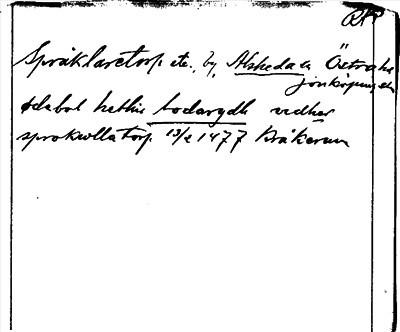 RAP
Språklaretorp etc., by, Alsheda sn Östra hd
Jönköpings län
odebol hethir bodarydh vedher
sprokullatorp 13/2 1477 Kråkerum